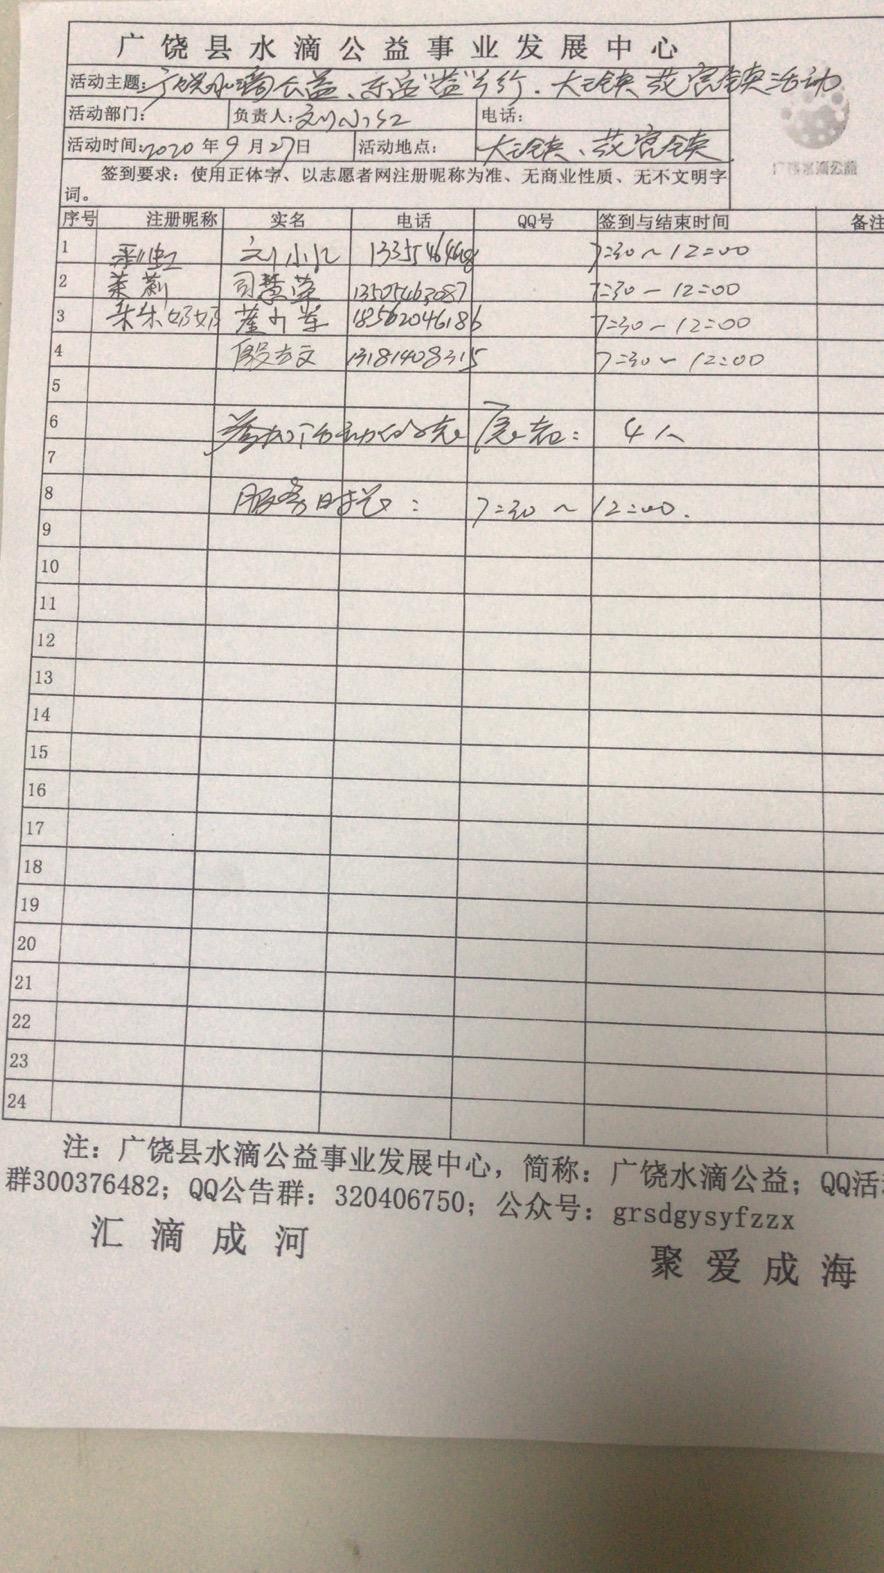 广饶县水滴公益事业发展中心
活动主题:广饶水滴公益、东营"益"齐行.大王镇花官镇活动
活动部门: 负责人:刘小红 电话:
活动时间:2020年9月27日 活动地点: 大王镇、花官镇
广饶水滴公益
签到要求：使用正体字、以志愿者网注册昵称为准、无商业性质、无不文明字
词。
序号 注册昵称 实名 电话 QQ号 签到与结束时间 备注
1 彩虹 刘小红 7:30～12:00
2 茉莉 司慧萍 13505463087 7:30－12:00
3 朵朵奶奶 18562046186 7:30－12:00
4 殷方文 13181408315 7:30～12:00
5
6 参加活动的志愿者: 4人
7
8 服务时长: 7:30～12:00.
9
10
11
12
13
14
15
16
17
18
19
20
21
22
23
24
注：广饶县水滴公益事业发展中心，简称：广饶水滴公益；QQ活
群300376482；QQ公告群：320406750；公众号：grsdgysyfzzx
汇滴成河
聚爱成海